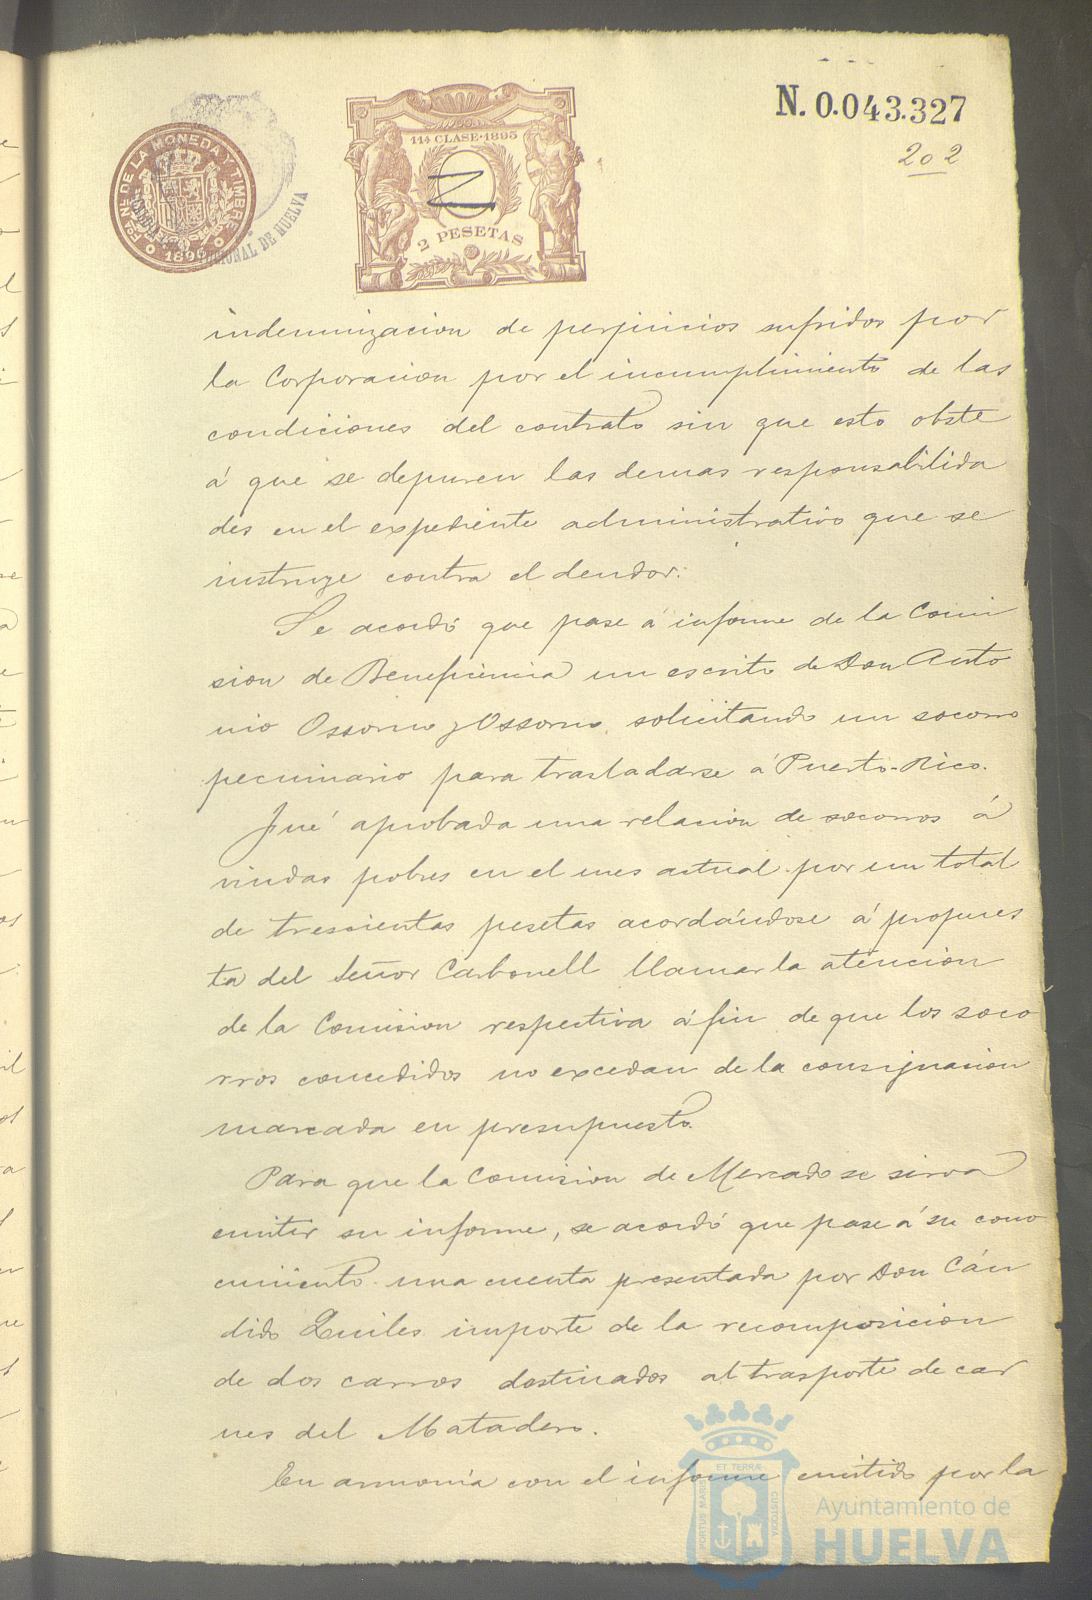 N. 0.043.327
202
FCA. NL. DE LA MONEDA Y TIMBRE
1896
CONAL DE HUELVA
11ª CLASE·1895
2 PESETAS
indemnizacion de perjuicios sufridos por
la Corporacion por el incumplimiento de las
condiciones del contrato sin que esto obste
á que se depuren las demas responsabilida
des en el expediente administrativo que se
instruye contra el deudor.
Se acordó que pase á informe de la Comi
sion de Beneficencia un escrito de Don Anto
nio Ossorno y Ossorno, solicitando un socorro
pecuniario para trasladarse á Puerto-Rico.
Fué aprobada una relacion de socorros á
viudas pobres en el mes actual por un total
de trescientas pesetas acordándose á propues
ta del Señor Carbonell llamar la atencion
de la Comision respectiva á fin de que los soco
rros concedidos no excedan de la consignacion
marcada en presupuesto.
Para que la Comision de Mercado se sirva
emitir su informe, se acordó que pase á su cono
cimiento una cuenta presentada por Don Cán
dido Quiles importe de la recomposicion
de dos carros destinados al trasporte de car
nes del Matadero.
En armonía con el informe emitido por la
PORTUS MARIS ET TERRÆ CUSTODIA
Ayuntamiento de
HUELVA